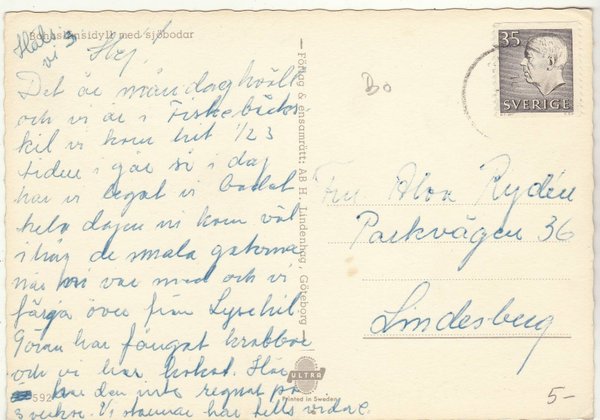 Bohuslänsidyll med sjöbodar
Häls
vi 3
Hej!
Det är måndagkväll
och vi är i Fiskebäcks-
kil vi kom hit 1/2 3
tiden i går så i dag
har vi legat vi badat
hela dagen ni kom väl
ihåg de smala gatorna
när ni var med och vi
färja över från Lysekil
Göran har fångat krabbor
och vi har kokat. Här
har den inte regnat på
3 veckor. Vi stannar här tills
592
Förlag & ensamrätt: AB H. Lindenhag, Göteborg
ULTRA
Printed in Sweden
35
SVERIGE
Bo
Fru Alva Rydén
Parkvägen 36
Lindesberg
5-